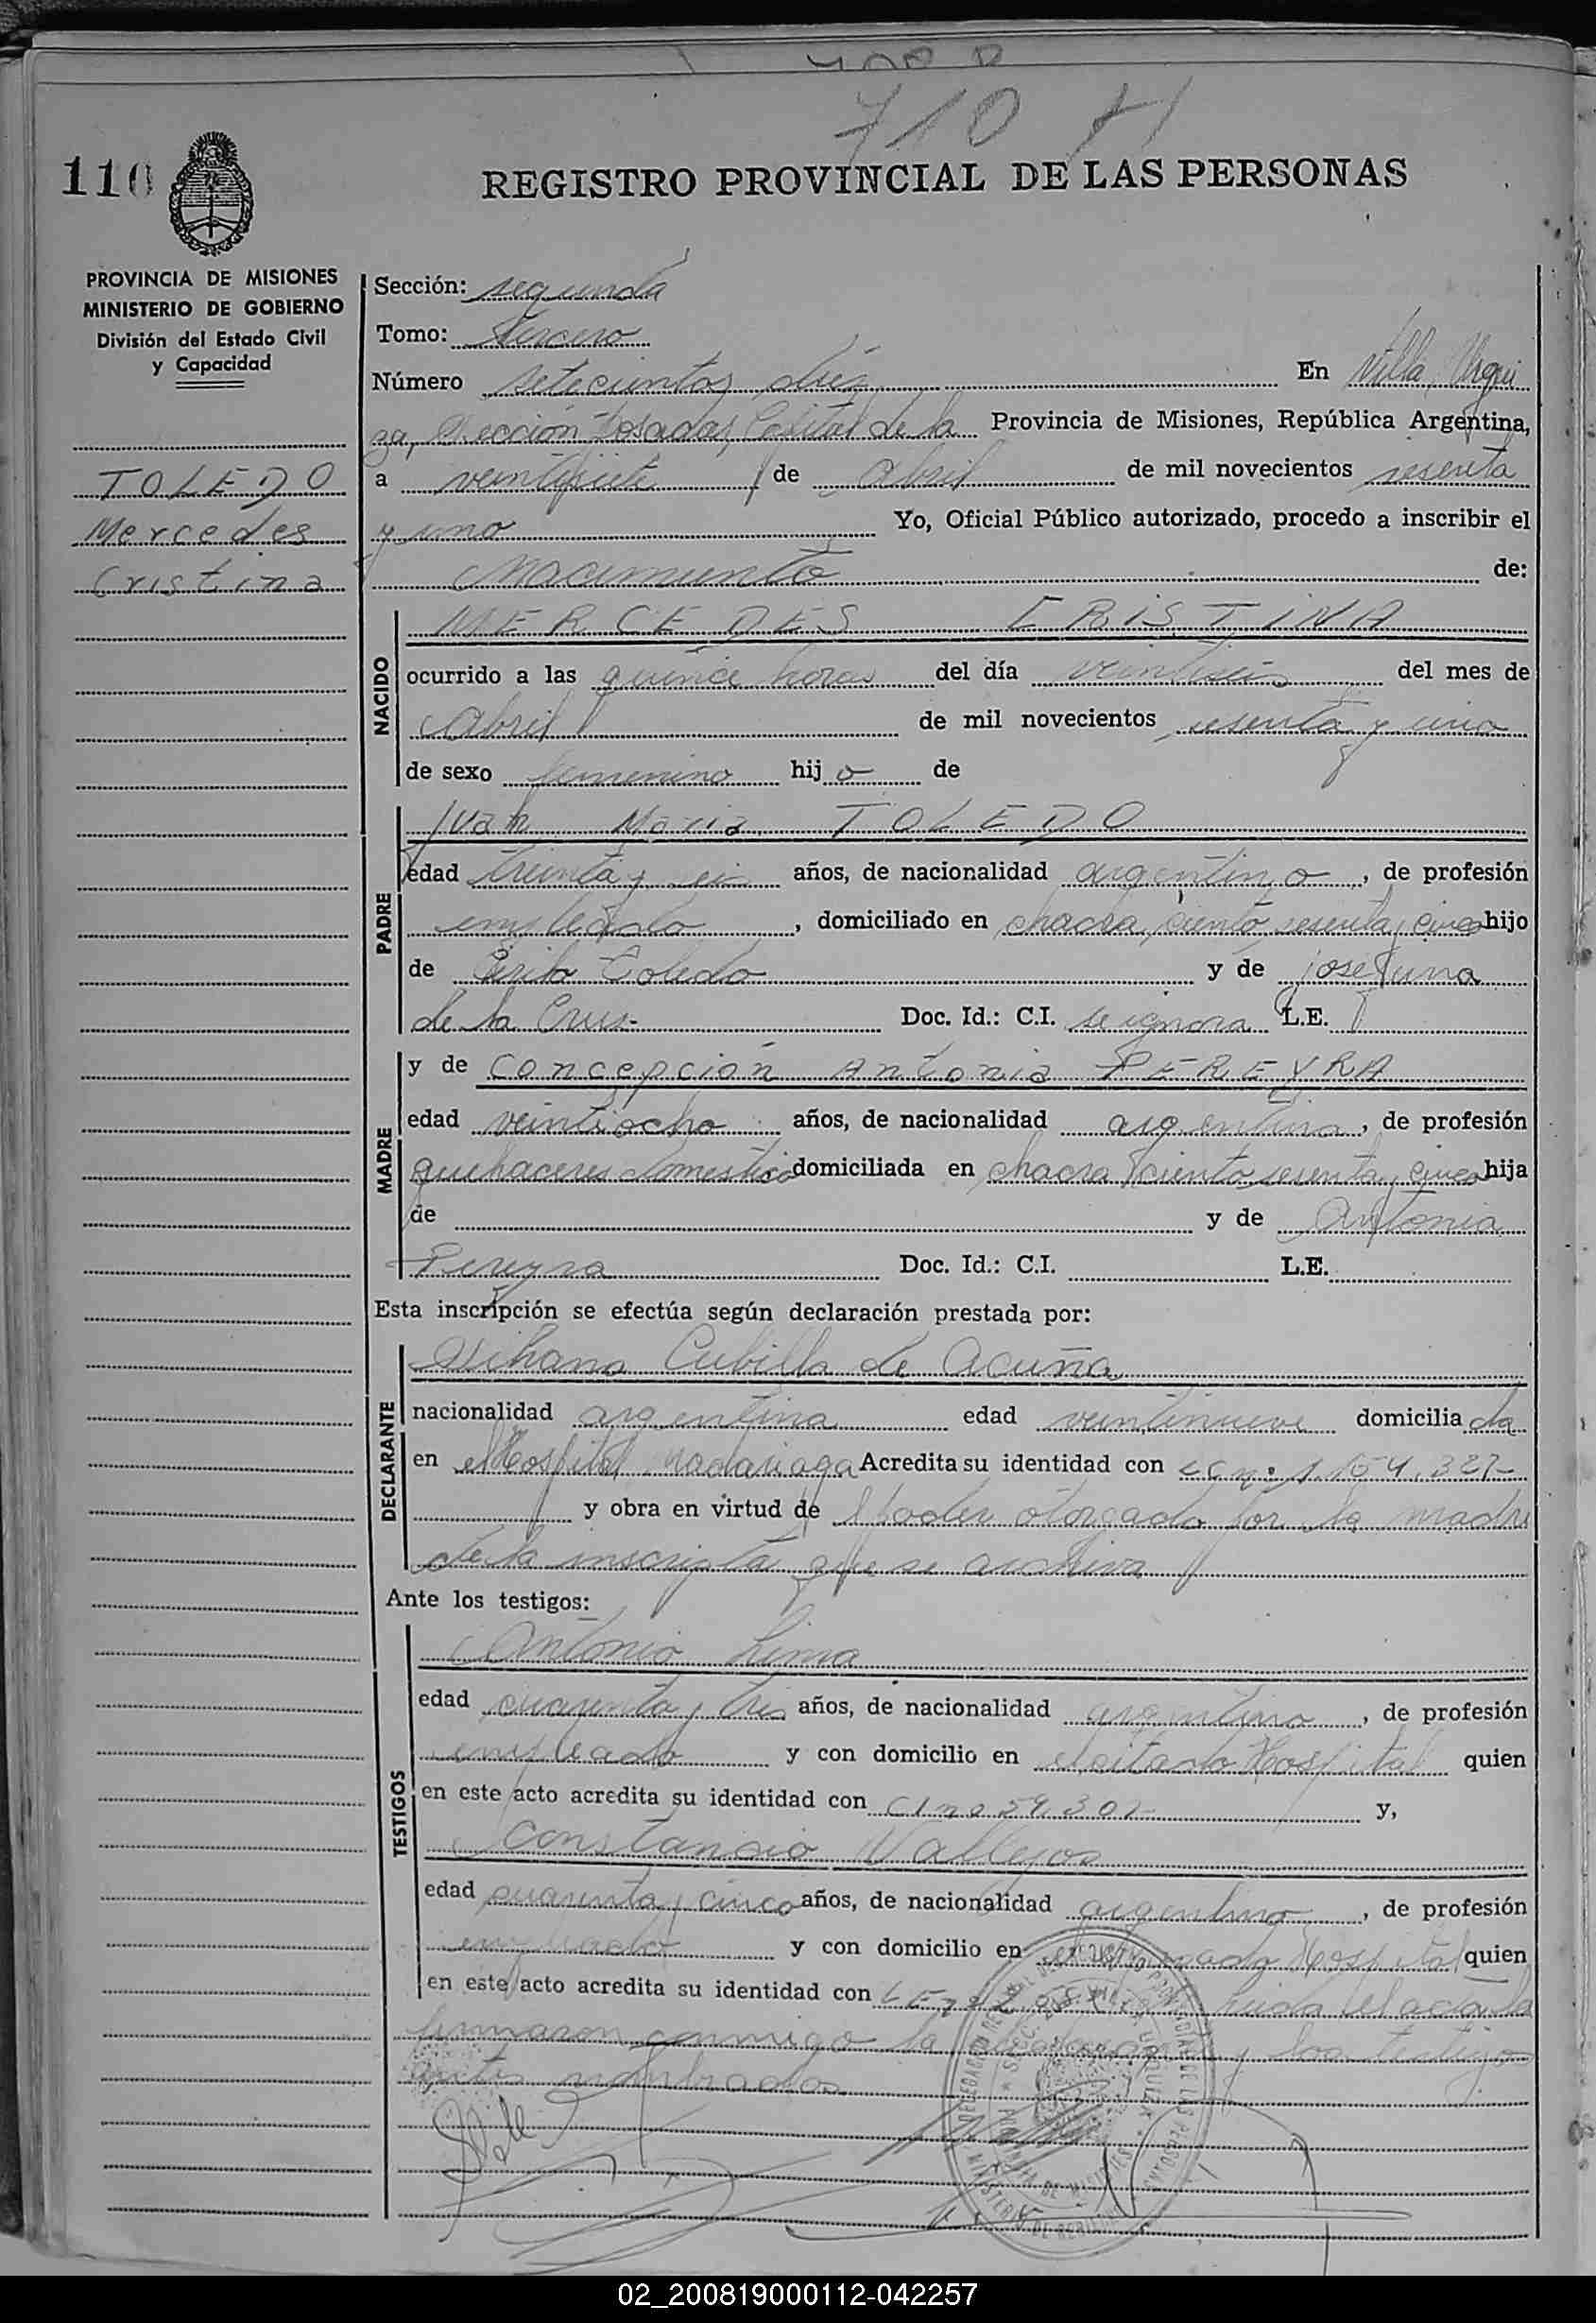 710
110
REGISTRO PROVINCIAL DE LAS PERSONAS
PROVINCIA DE MISIONES
MINISTERIO DE GOBIERNO
División del Estado Civil
y Capacidad
TOLEDO
Mercedes
Cristina
Sección: segunda
Tomo: tercero
Número setecientos diez En Villa Urqui
za, Sección Posadas, Capital de la Provincia de Misiones, República Argentina,
a veintisiete de Abril de mil novecientos sesenta
y uno Yo, Oficial Público autorizado, procedo a inscribir el
Nacimiento de:
NACIDO
MERCEDES CRISTINA
ocurrido a las quince horas del día veintiseis del mes de
Abril de mil novecientos sesenta y uno
de sexo femenino hij a de
PADRE
Juan Maria TOLEDO
edad treinta y seis años, de nacionalidad argentino, de profesión
empleado, domiciliado en chacra ciento sesenta y cinco hijo
de Toledo y de josefina
de la Cruz.- Doc. Id.: C.I. se ignora L.E.
MADRE
y de Concepción Antonia PEREYRA
edad veintiocho años, de nacionalidad argentina, de profesión
quehaceres domestico domiciliada en chacra ciento sesenta y cinco hija
de y de Antonia
Pereyra Doc. Id.: C.I. L.E.
Esta inscripción se efectúa según declaración prestada por:
DECLARANTE
Cubilla de Acuña
nacionalidad argentina edad veintinueve domicilia da
en el Hospital Madariaga Acredita su identidad con
y obra en virtud de poder otorgado por la madre
de la inscripta que se archiva
Ante los testigos:
TESTIGOS
Antonio Lima
edad cuarenta y tres años, de nacionalidad argentino, de profesión
empleado y con domicilio en el citado Hospital quien
en este acto acredita su identidad con y,
Constancio Vallejos
edad cuarenta y cinco años, de nacionalidad argentino, de profesión
empleado y con domicilio en Hospital quien
en este acto acredita su identidad con leida el acta la
firmaron conmigo la declarante y los testigos
antes nombrados
02_200819000112-042257